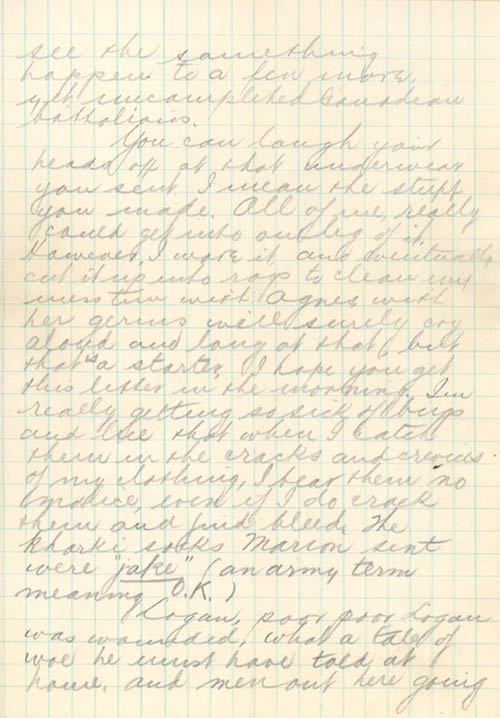 see the something
happen to a few more,
yet uncompleted Canadian
battalions.
You can laugh your
heads off at that underwear
you sent. I mean the stuff
you made. All of me, really
could get into one leg of it.
However, I wore it and eventually
cut it up into rags to clean my
mess tin with. Agnes with
her germs will surely cry
aloud and long at that, but
that is a starter, I hope you get
this letter in the morning. I'm
really getting so sick of bugs
and lice that when I catch
them in the cracks and crevices
of my clothing, I bear them no
malice, even if I do crack
them and find blood. The
kharki socks Marion sent
were "jake" (an army term
meaning O.K.)
Logan, poor poor Logan
was wounded, what a tale of
woe he must have told at
home, and men out here going